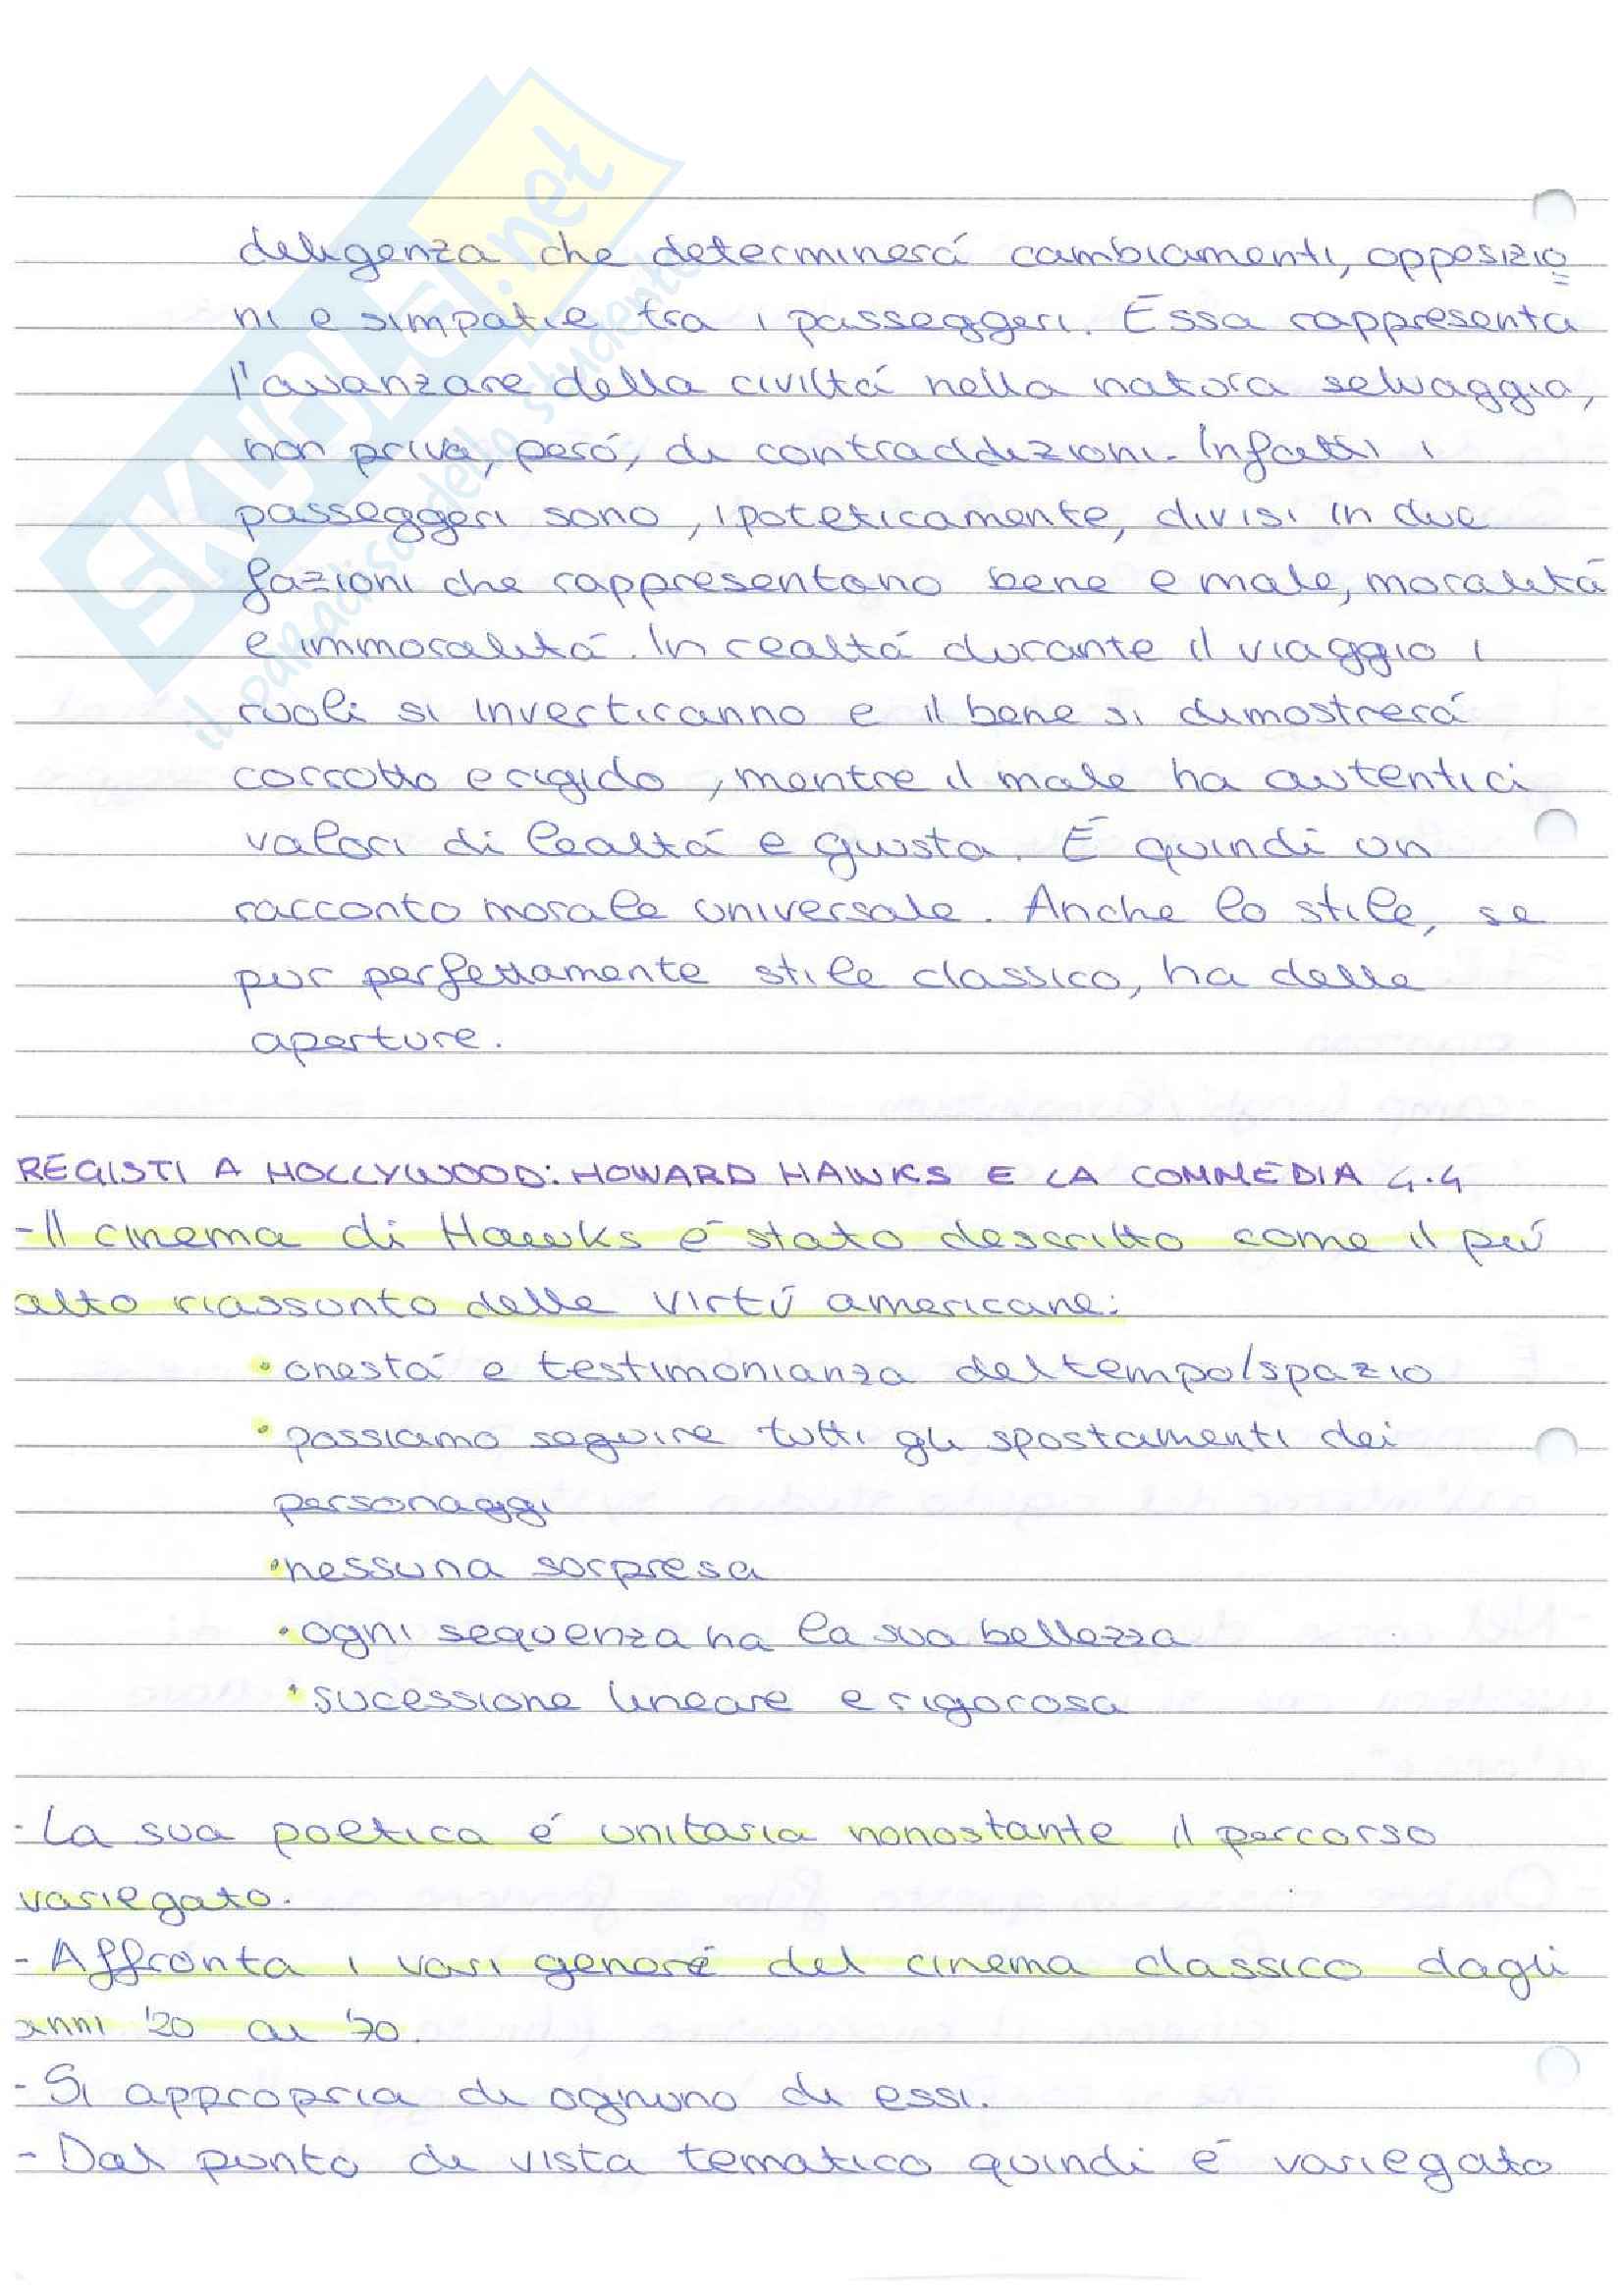 SKUOLA.net
il paradiso dello studente
deligenza che determinerá cambiamenti, opposizio
ni e simpatie tra i passeggeri. Essa rappresenta
l'avanzare della civiltá nella natura selvaggia,
non priva, peró, di contraddizioni. Infatti i
passeggeri sono, ipoteticamente, divisi in due
fazioni che rappresentano bene e male, moralitá
e immoralitá. In realtá durante il viaggio i
ruoli si invertiranno e il bene si dimostrerá
corrotto e rigido, mentre il male ha autentici
valori di lealtá e giusta. É quindi un
racconto morale universale. Anche lo stile, se
pur perfettamente stile classico, ha delle
aperture.
REGISTI A HOLLYWOOD: HOWARD HAWKS E LA COMMEDIA 4.4
- Il cinema di Hawks é stato descritto come il piú
alto riassunto delle virtú americane:
• onestá e testimonianza del tempo/spazio
• possiamo seguire tutti gli spostamenti dei
personaggi
• nessuna sorpresa
• ogni sequenza ha la sua bellezza
• sucessione lineare e rigorosa
- La sua poetica é unitaria nonostante il percorso
variegato.
- Affronta i vari generi del cinema classico dagli
anni '20 ai '70.
- Si appropria di ognuno di essi.
- Dal punto di vista tematico quindi é variegato